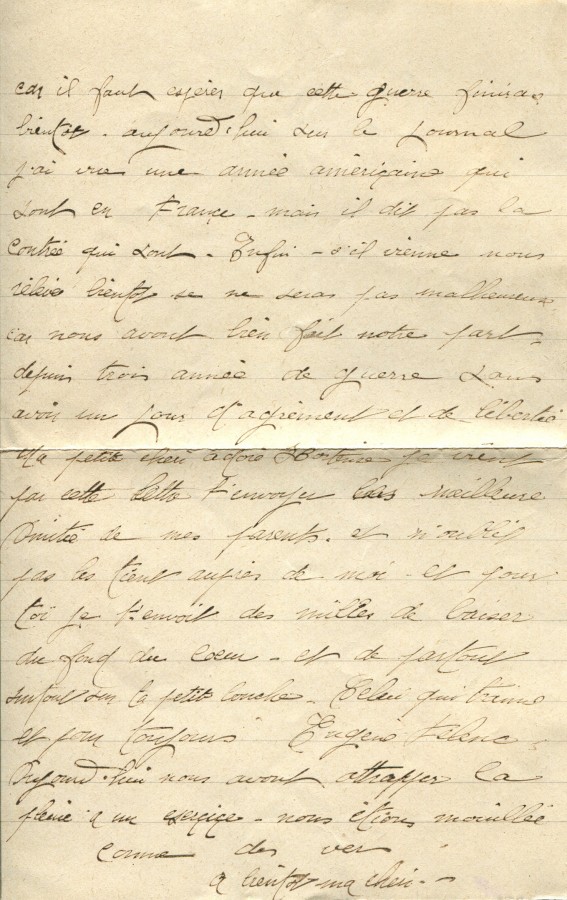 car il faut espérer que cette guerre finiras
bientot. aujourd'hui sur le journal
j'ai vue une armée américaine qui
sont en France - mais il dit pas la
contrée qui sont. Enfin - s'il vienne nous
relevé bientot se ne seras pas malheureux
car nous avont bien fait notre part
depuis trois année de guerre sans
avoir un jour d'agrément et de liberté
Ma petite cheri adoré Hortense je vient
par cette lettre t'envoyer les meilleure
Amitié de mes parents. et n'oublit
pas les tient auprès de moi - et pour
toi je t'envoit des milles de baiser
du fond du cœur - et de partout
surtout sur la petite bouche - Celui qui t'aime
et pour toujours Eugene Felenc
Aujourd'hui nous avont attrapper la
pluie a un exercice - nous étions mouillée
comme des ver
a bientot ma cheri -